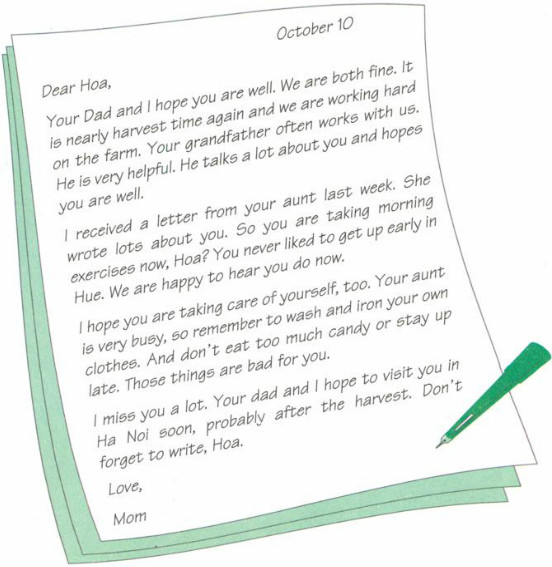 October 10
Dear Hoa,
Your Dad and I hope you are well. We are both fine. It
is nearly harvest time again and we are working hard
on the farm. Your grandfather often works with us.
He is very helpful. He talks a lot about you and hopes
you are well.
I received a letter from your aunt last week. She
wrote lots about you. So you are taking morning
exercises now, Hoa? You never liked to get up early in
Hue. We are happy to hear you do now.
I hope you are taking care of yourself, too. Your aunt
is very busy, so remember to wash and iron your own
clothes. And don't eat too much candy or stay up
late. Those things are bad for you.
I miss you a lot. Your dad and I hope to visit you in
Ha Noi soon, probably after the harvest. Don't
forget to write, Hoa.
Love,
Mom